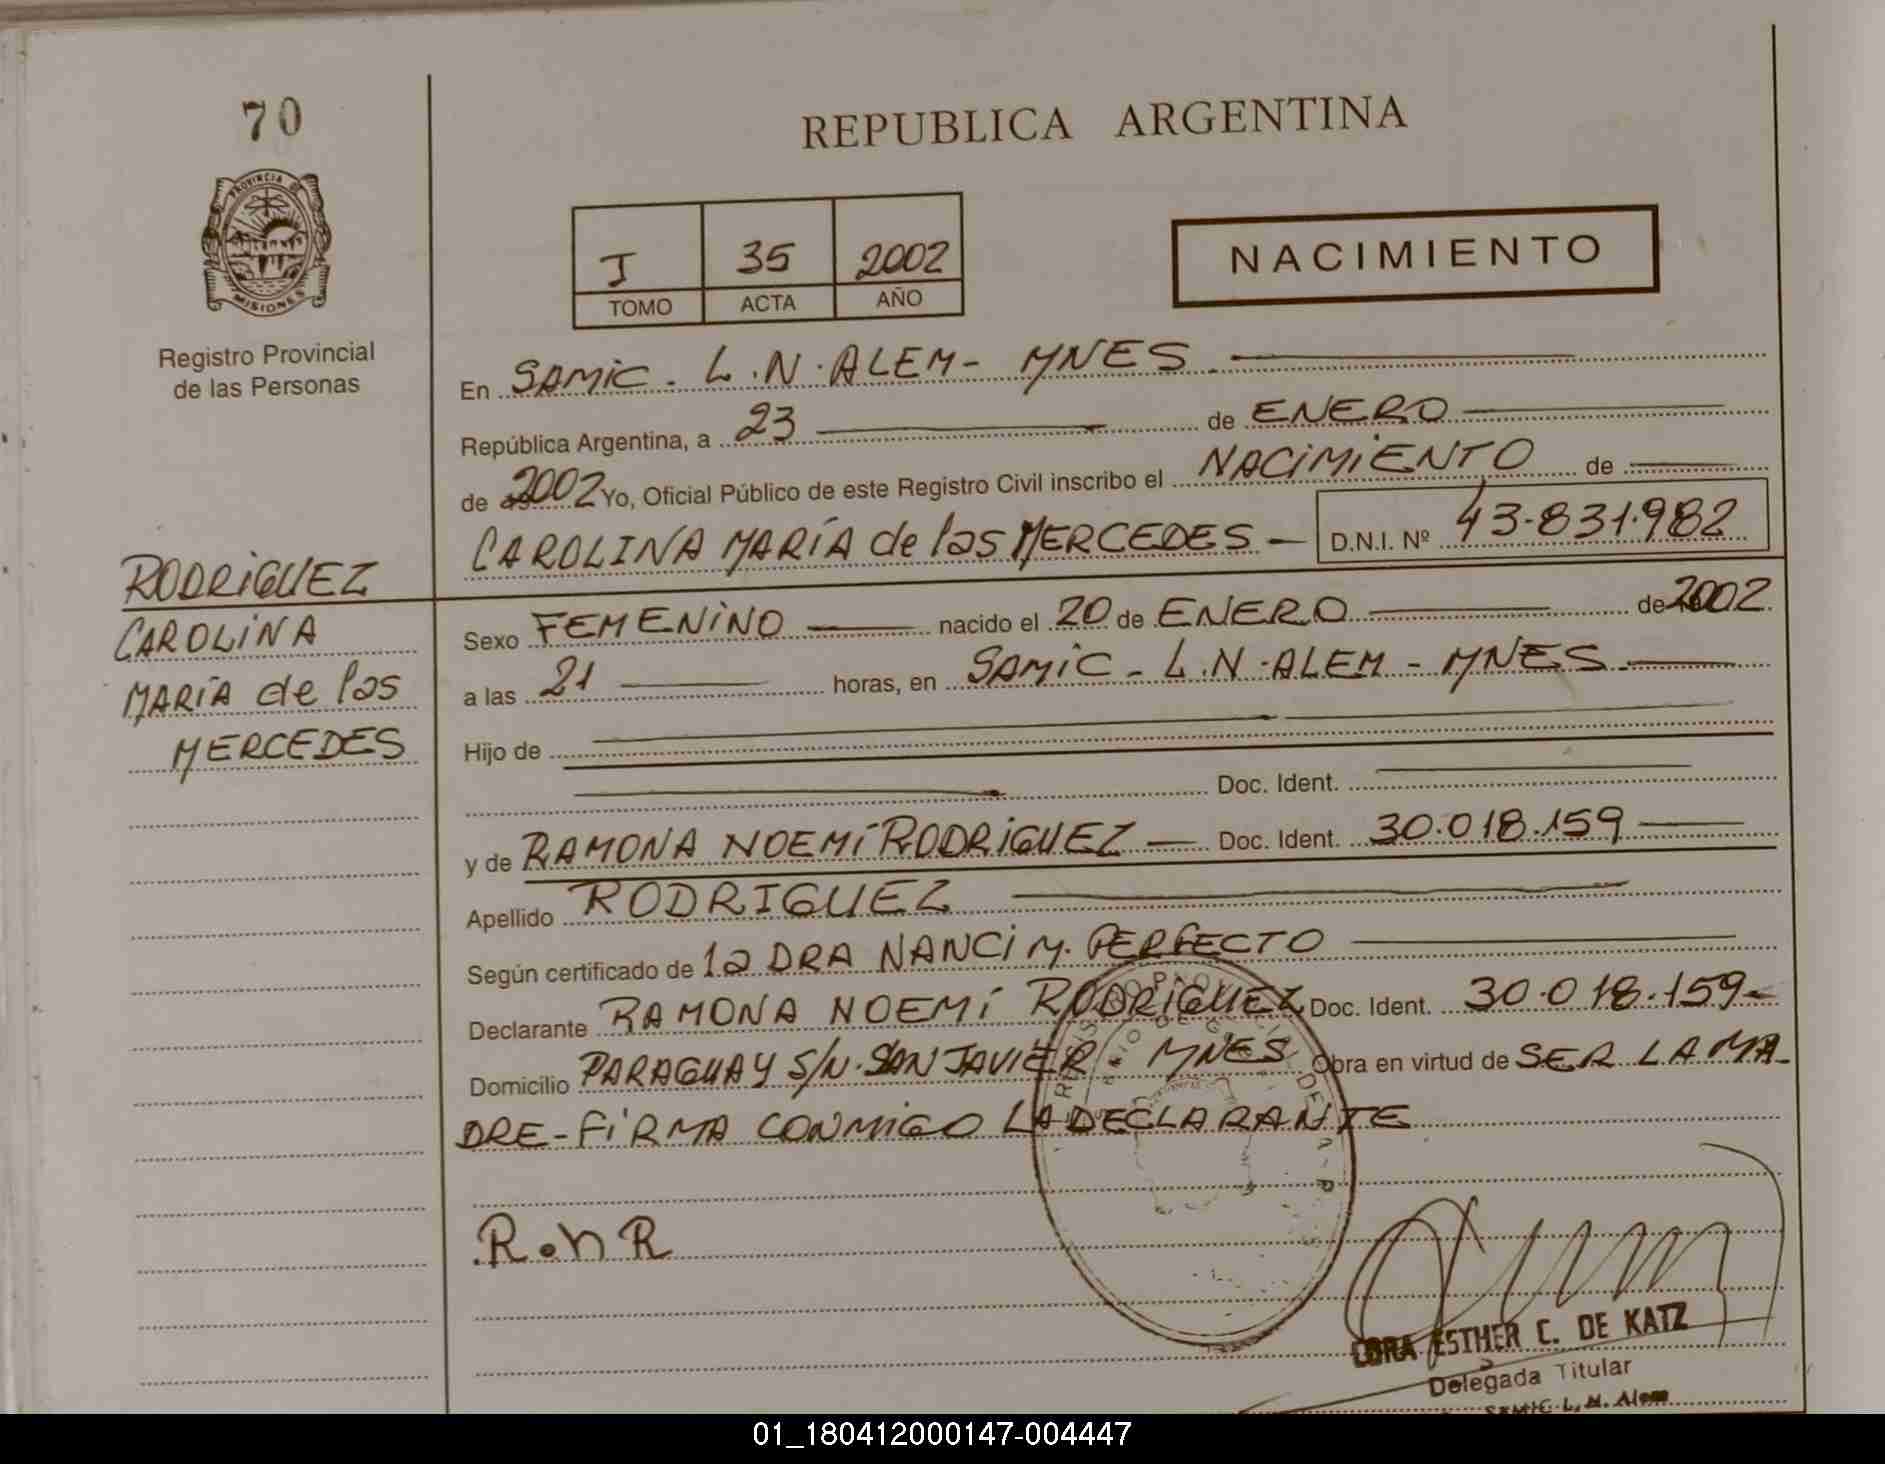 70
REPUBLICA ARGENTINA
PROVINCIA DE
MISIONES
I 35 2002
TOMO ACTA AÑO
NACIMIENTO
Registro Provincial
de las Personas
En SAMIC - L.N. ALEM - MNES.
República Argentina, a 23 de ENERO
de 2002 Yo, Oficial Público de este Registro Civil inscribo el NACIMIENTO de
CAROLINA MARÍA de las MERCEDES - D.N.I. Nº 43.831.982
RODRIGUEZ
CAROLINA
MARÍA de las
MERCEDES
Sexo FEMENINO nacido el 20 de ENERO de 2002
a las 21 horas, en SAMIC - L.N. ALEM - MNES
Hijo de
Doc. Ident.
y de RAMONA NOEMÍ RODRIGUEZ - Doc. Ident. 30.018.159
Apellido RODRIGUEZ
Según certificado de la DRA NANCI M. PERFECTO
Declarante RAMONA NOEMÍ RODRIGUEZ Doc. Ident. 30.018.159-
Domicilio PARAGUAY S/N. SAN JAVIER MNES Obra en virtud de SER LA MA-
DRE - FIRMA CONMIGO LA DECLARANTE
R.N R
CORA ESTHER C. DE KATZ
Delegada Titular
SAMIC L. N. Alem
01_180412000147-004447